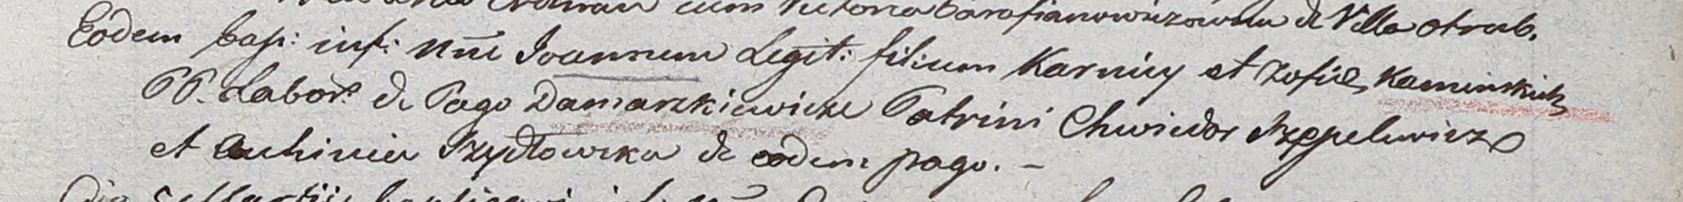 cum Victoria Barafianowiczowna de Villa otrub.
Eodem bap: inf: Nne Joannem Legit: filium Karnicy et Zofiæ Kaminskich
PP. Labor: de Pago Damaszkiewicze Patrini Chwiedor Szepelewicz
et Auhinia Szydłowska de eodem pago. –